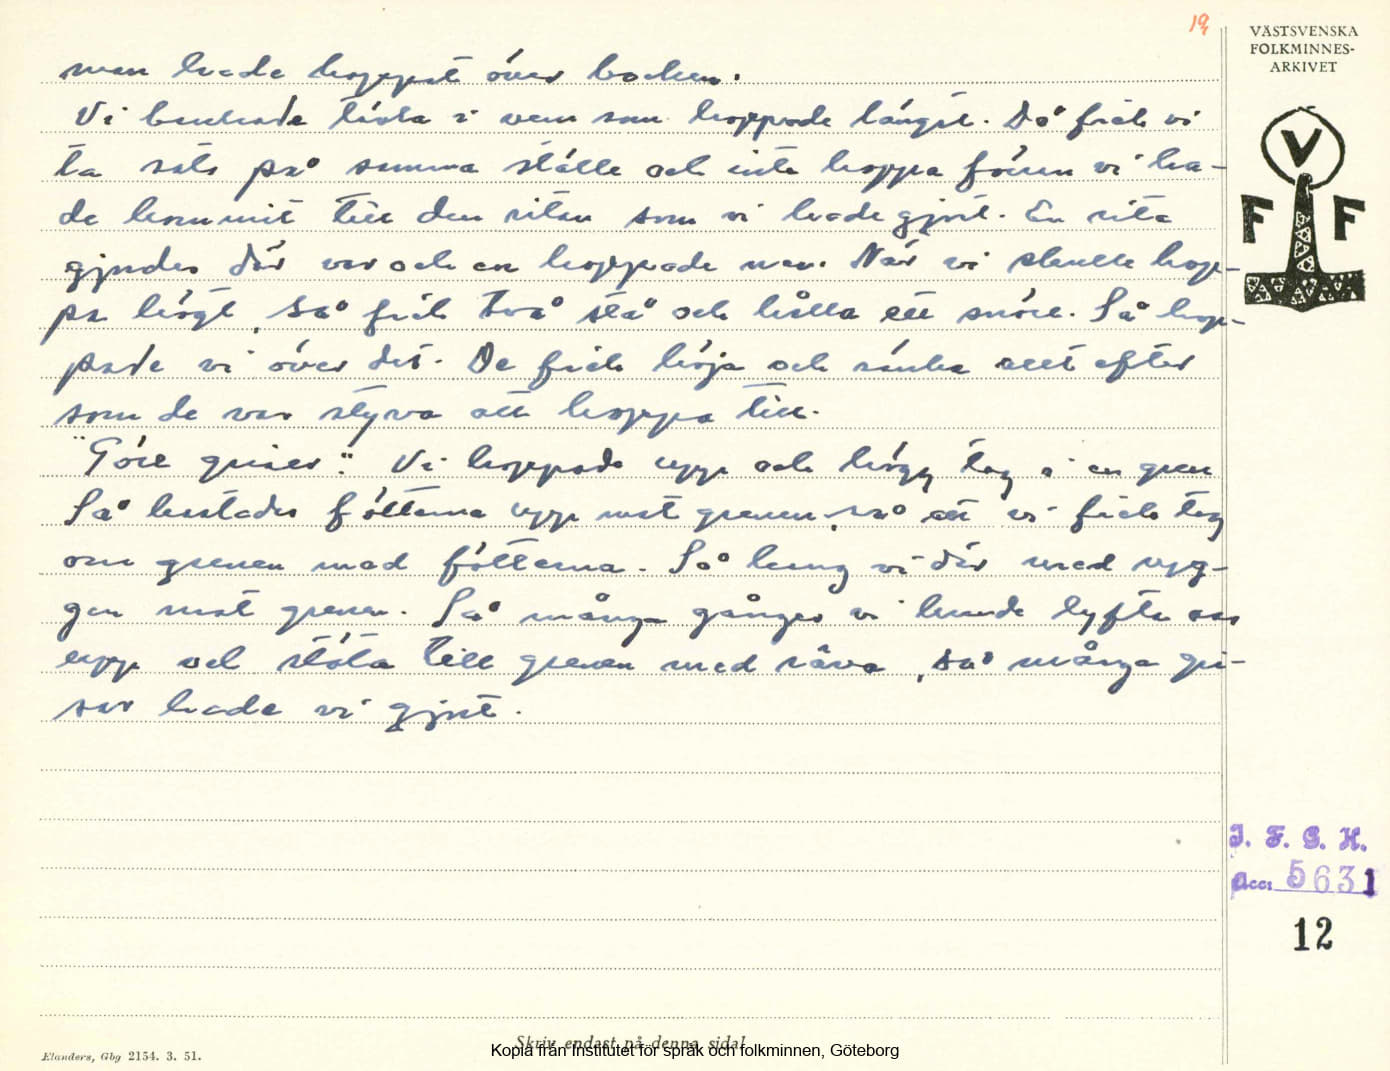 19
VÄSTSVENSKA
FOLKMINNES-
ARKIVET
V
F F
man hade hoppat över bocken.
Vi brukade tävla i vem som hoppade längst. Då fick vi
ta sats på samma ställe och inte hoppa förrn vi ha-
de kommit till den ritan som vi hade gjort. En rita
gjordes där var och en hoppade ner. När vi skulle hop-
pa högt, så fick två stå och hålla ett snöre. Så hop-
pade vi över det. De fick höja och sänka allt efter
som de var styva att hoppa till.
"Göre griser". Vi hoppade upp och högg tag i en gren
Så kastades fötterna upp mot grenen, så att vi fick tag
om grenen med fötterna. Så hang vi där med ryg-
gen mot grenen. Så många gånger vi kunde lyfta oss
upp och stöta till grenen med räva, så många gri-
sar hade vi gjort.
I. F. G. H.
Acc: 5631
12
Skriv endast på denna sida!
Elanders, Gbg 2154. 3. 51.
Kopia från Institutet för språk och folkminnen, Göteborg